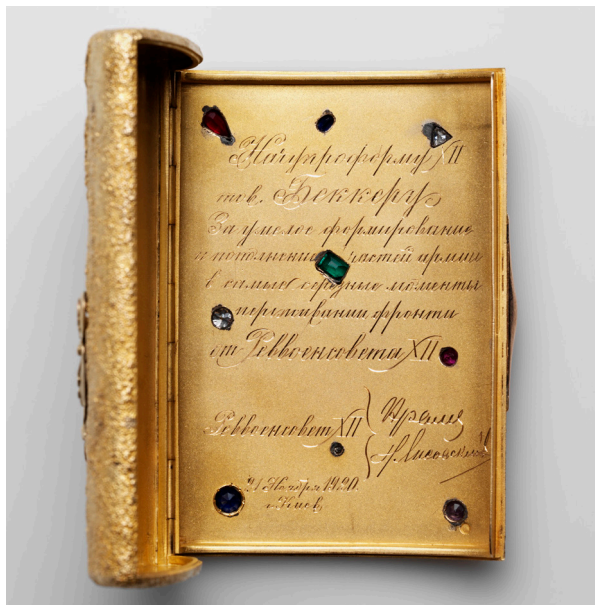 Начупроформу XII
тов. Беккеру
За умелое формирование
и пополнение частей армии
в самые трудные моменты
переживании фронта
от Реввоенсовета XII
Реввоенсовет XII
Н. Лисовский
21 Ноября 1920.
г. Киев